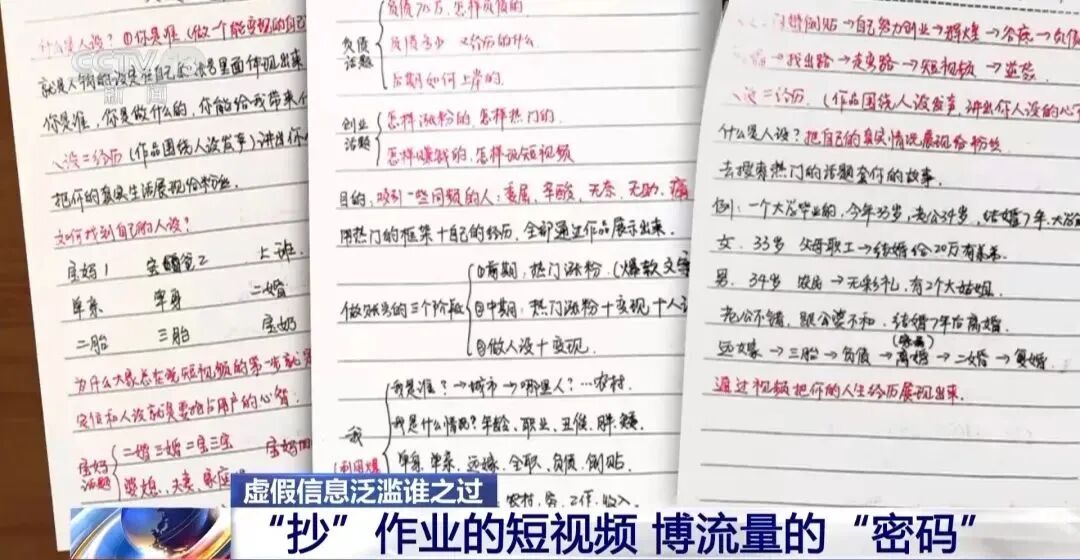 CCTV 13
新闻
什么是人设？①你是谁（做一个能变现的自己
就是人物的设定在自己
里面体现出来
你是谁，你是做什么的，你能给我带来什
人设=经历（作品围绕人设发声）讲出你
把你的真实生活展现给粉丝。
如何找到自己的人设？
宝妈1 2 上班
单亲 单身 二婚
二胎 三胎 宝奶
为什么大家总在说短视频的第一步就
定位和人设就是要抢占用户的心智：
宝妈话题
二婚 三婚 二宝 三宝
婆媳、夫妻、家庭
负债话题
负债70万，怎样负债的
负债多少 又经历的什么
后期如何上岸的。
创业话题
怎样涨粉的，怎样热门的
怎样赚钱的，怎样做短视频
目的：吸引一些同频的人：委屈、辛酸、无奈、无助、痛
用热门的框架+自己的经历，全部通过作品展示出来。
做账号的三个阶段
①前期：热门涨粉（爆款文
②中期：热门涨粉+变现+人设
③做人设+变现.
我
我是谁？→城市→哪里人？…农村.
我是什么情况？年龄、职业、丑俊、胖矮
单身、单亲、远嫁、全职、负债、倒贴
农村、穷、工作、收入
→自己努力创业→辉煌→谷底→负债
→找出路→走弯路→短视频→逆袭
人设=经历.（作品围绕人设发声，讲出你人设的心
什么是人设？把自己的真实情况展现给粉丝
去搜索热门的话题套你的故事.
例：一个大专毕业的，今年33岁，老公34岁，结婚7年，大
女．33岁 父母职工→结婚给20万
男．34岁 农民→无彩礼，有2个大姑姐.
老公不错，跟公婆不和，结婚7年后离婚.
远嫁→三胎→负债→离婚→二婚→复婚.
通过视频把你的人生经历展现出来.
虚假信息泛滥谁之过
“抄”作业的短视频 博流量的“密码”